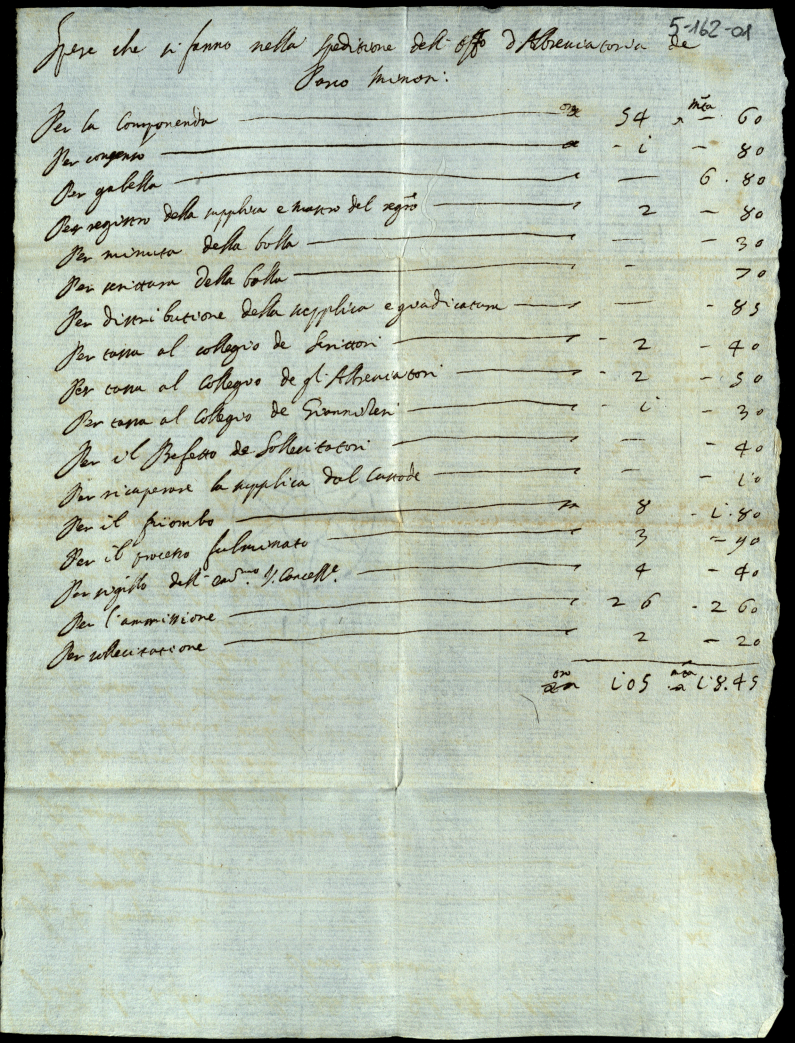 5-162-01
Spese che si fanno nella speditione dell' offo d'Abbreviatoria de
Parco minori:
Per la Componenda — oro 54 mta — 60
Per consenso — - i — 80
Per gabella — — 6.80
Per registro della supplica e mastro del regro — 2 — 80
Per minuta della bolla — — - 30
Per scrittura della bolla — - 70
Per distributione della supplica e giudicatura — — - 85
Per tassa al collegio de Scrittori — - 2 - 40
Per tassa al Collegio de gl'Abbreviatori — - 2 - 50
Per tassa al Collegio de Giannizeri — - i - 30
Per il Prefetto de Sollecitatori — — - 40
Per ricuperare la supplica dal Custode — — - i0
Per il piombo — 8 - i.80
Per il processo fulminato — 3 - 90
Per sigillo dell' V. Cancelle. — 4 - 40
Per l'ammissione — 26 - 2 60
Per sollecitatione — 2 - 20
oro i05 mta i8.45